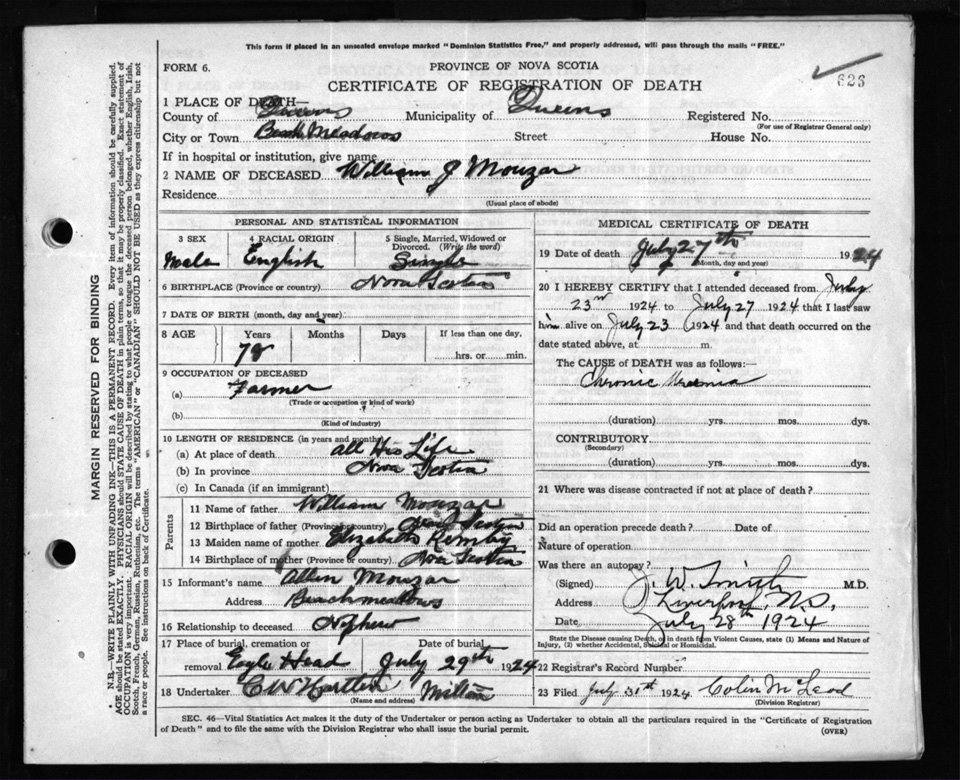 This form if placed in an unsealed envelope marked "Dominion Statistics Free," and properly addressed, will pass through the mails "FREE."
FORM 6. PROVINCE OF NOVA SCOTIA
CERTIFICATE OF REGISTRATION OF DEATH 826
1 PLACE OF DEATH—
County of Queens Municipality of Queens Registered No.
(For use of Registrar General only)
City or Town Beach Meadows Street House No.
If in hospital or institution, give name
2 NAME OF DECEASED William J Mouzar
Residence
(Usual place of abode)
PERSONAL AND STATISTICAL INFORMATION
3 SEX 4 RACIAL ORIGIN 5 Single, Married, Widowed or Divorced. (Write the word)
Male English Single
6 BIRTHPLACE (Province or country) Nova Scotia
7 DATE OF BIRTH (month, day and year)
8 AGE Years Months Days If less than one day,
78 hrs. or min.
9 OCCUPATION OF DECEASED
(a) Farmer
(Trade or occupation or kind of work)
(b)
(Kind of industry)
10 LENGTH OF RESIDENCE (in years and months)
(a) At place of death all His Life
(b) In province Nova Scotia
(c) In Canada (if an immigrant)
Parents
11 Name of father William Mouzar
12 Birthplace of father (Province or country) Nova Scotia
13 Maiden name of mother Elizabeth
14 Birthplace of mother (Province or country) Nova Scotia
15 Informant's name Allen Mouzar
Address Beach meadows
16 Relationship to deceased Nephew
17 Place of burial, cremation or Date of burial
removal Eagle Head July 29th 1924
18 Undertaker C W Milton
(Name and address)
MEDICAL CERTIFICATE OF DEATH
19 Date of death July 27th 1924
(Month, day and year)
20 I HEREBY CERTIFY that I attended deceased from July
23rd 1924 to July 27 1924 that I last saw
him alive on July 23 1924 and that death occurred on
date stated above, at m.
The CAUSE of DEATH was as follows:
Chronic Uraemia
(duration) yrs. mos. dys.
CONTRIBUTORY
(Secondary)
(duration) yrs. mos. dys.
21 Where was disease contracted if not at place of death?
Did an operation precede death? Date of
Nature of operation
Was there an autopsy?
(Signed) J. W. Smith M.D.
Address Liverpool, N.S.
Date July 28th 1924
State the Disease causing Death, or in death from Violent Causes, state (1) Means and Nature of
Injury, (2) whether Accidental, Suicidal or Homicidal.
22 Registrar's Record Number
23 Filed July 31st 1924 Colin McLeod
(Division Registrar)
SEC. 46—Vital Statistics Act makes it the duty of the Undertaker or person acting as Undertaker to obtain all the particulars required in the "Certificate of Registration
of Death" and to file the same with the Division Registrar who shall issue the burial permit. (OVER)
MARGIN RESERVED FOR BINDING
N.B.—WRITE PLAINLY WITH UNFADING INK—THIS IS A PERMANENT RECORD. Every item of information should be carefully supplied.
AGE should be stated EXACTLY. PHYSICIANS should STATE CAUSE OF DEATH in plain terms, so that it may be properly classified. Exact statement of
OCCUPATION is very important. RACIAL ORIGIN will be described by stating to what people or tongue the deceased person belonged, whether English, Irish,
Scotch, French, German, Russian, Ruthenian, etc. The terms "AMERICAN" or "CANADIAN" SHOULD NOT BE USED as they express citizenship but not
a race or people. See instructions on back of Certificate.